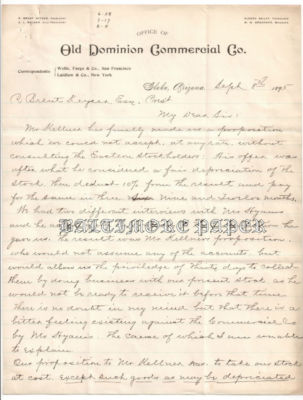 OFFICE OF
Old Dominion Commercial Co.
Correspondents
Wells, Fargo & Co., San Francisco
Laidlaw & Co., New York
Globe, Arizona, Sept 8th 1895
Brent Keyser Esq. Prest
My Dear Sir:
Mr Kellner has finally made us a proposition
which we could not accept, at any rate, without
consulting the Eastern Stockholders. His offer was
after what he considered a fair depreciation of the
Stock, then deduct 10% from the result and pay
for the same in three Nine and Twelve months.
We had two different interviews with
and he
BALTIMORE PAPER
gave us. The result was Mr Kellners proposition.
who would not assume any of the accounts, but
would allow us the priviledge of thirty days to collect
them by doing business with our present stock as he
would not be ready to receive it before that time.
There is no doubt in my mind but that there is a
bitter feeling existing against the Commercial Co
by Mr The cause of which I am unable
to explain.
Our proposition to Mr Kellner, was to take our stock
at cost, except such goods as may be depreciated